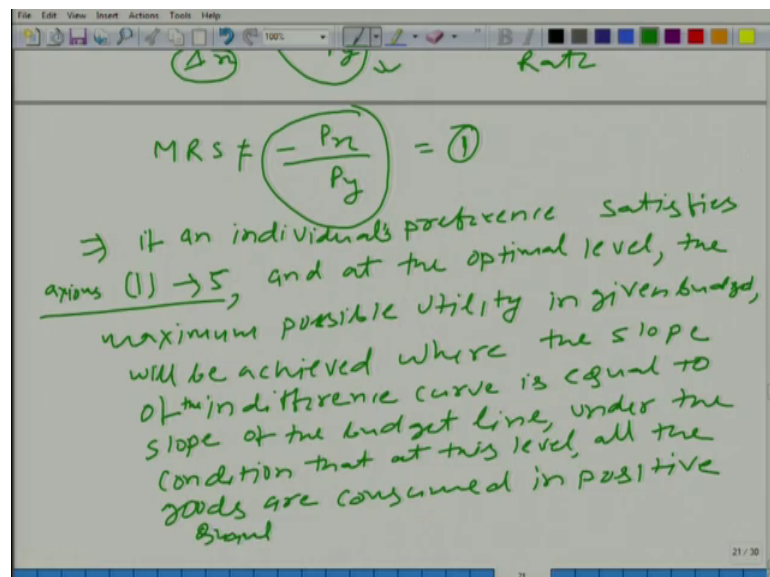 File Edit View Insert Actions Tools Help
100%
Δx Py Rate
MRS ≠ - Px / Py = ①
⇒ if an individual's preference satisfies
axioms (1) → 5, and at the optimal level, the
maximum possible utility in given budget,
will be achieved where the slope
of the indifference curve is equal to
slope of the budget line, under the
condition that at this level, all the
goods are consumed in positive
21 / 30
21